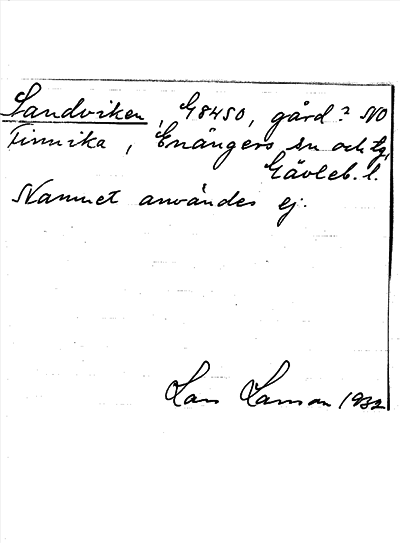 Sandviken, G8450, gård? NO
Finnika, Enångers sn och tg,
Gävleb. l.
Namnet användes ej.
Lars Larsson 1932